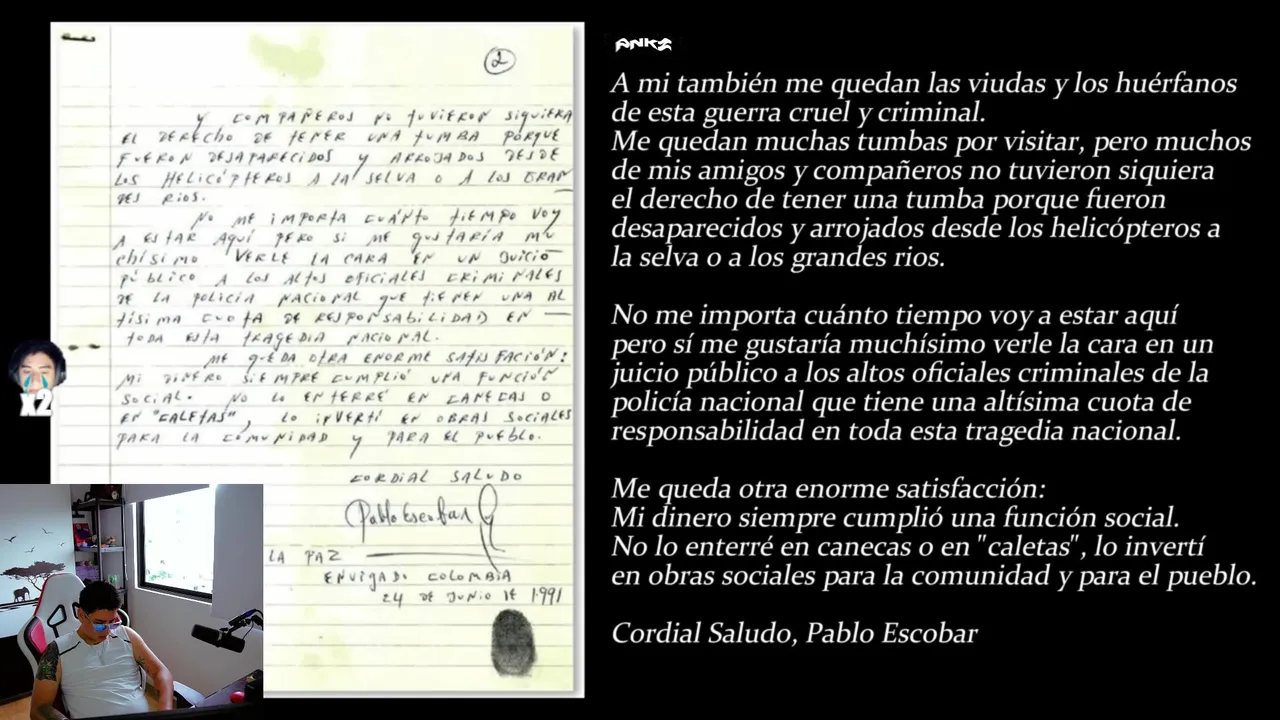 2
Y COMPAÑEROS NO TUVIERON SIQUIERA
EL DERECHO DE TENER UNA TUMBA PORQUE
FUERON DESAPARECIDOS Y ARROJADOS DESDE
LOS HELICÓPTEROS A LA SELVA O A LOS GRAN
DES RIOS.
NO ME IMPORTA CUÁNTO TIEMPO VOY
A ESTAR AQUÍ PERO SI ME GUSTARÍA MU
CHÍSIMO VERLE LA CARA EN UN JUICIO
PÚBLICO A LOS ALTOS OFICIALES CRIMINALES
DE LA POLICÍA NACIONAL QUE TIENEN UNA AL
TÍSIMA CUOTA DE RESPONSABILIDAD EN
TODA ESTA TRAGEDIA NACIONAL.
ME QUEDA OTRA ENORME SATISFACIÓN:
MI DINERO SIEMPRE CUMPLIÓ UNA FUNCIÓN
SOCIAL. NO LO ENTERRÉ EN CANECAS O
EN "CALETAS", LO INVERTÍ EN OBRAS SOCIALES
PARA LA COMUNIDAD Y PARA EL PUEBLO.
CORDIAL SALUDO
Pablo Escobar G
LA PAZ
ENVIGADO COLOMBIA
24 DE JUNIO DE 1.991
X2
ANKZ
A mi también me quedan las viudas y los huérfanos
de esta guerra cruel y criminal.
Me quedan muchas tumbas por visitar, pero muchos
de mis amigos y compañeros no tuvieron siquiera
el derecho de tener una tumba porque fueron
desaparecidos y arrojados desde los helicópteros a
la selva o a los grandes rios.
No me importa cuánto tiempo voy a estar aquí
pero sí me gustaría muchísimo verle la cara en un
juicio público a los altos oficiales criminales de la
policía nacional que tiene una altísima cuota de
responsabilidad en toda esta tragedia nacional.
Me queda otra enorme satisfacción:
Mi dinero siempre cumplió una función social.
No lo enterré en canecas o en "caletas", lo invertí
en obras sociales para la comunidad y para el pueblo.
Cordial Saludo, Pablo Escobar